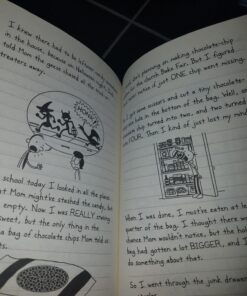 I knew there had to be
in the house, because on Halloween night
told Mom the geese chased all the
treaters away.
school today I looked in all the places
Mom might've stashed the candy, but
empty. Now I was REALLY craving
sweet, but the only thing in the
a bag of chocolate chips Mom told us
planning on making chocolate-chip
for the church Bake Fair. But I figured
notice if just ONE chip went missing.
scissors and cut a tiny
hole in the bottom of the bag. Well,
chip turned into two, and two turned
FOUR. Then I kind of just lost my mind
When I was done, I must've eaten at least
quarter of the bag. I thought there was
chance Mom wouldn't notice, but the hole
bag had gotten a lot BIGGER, and I
do something about that.
So I went through the junk drawer